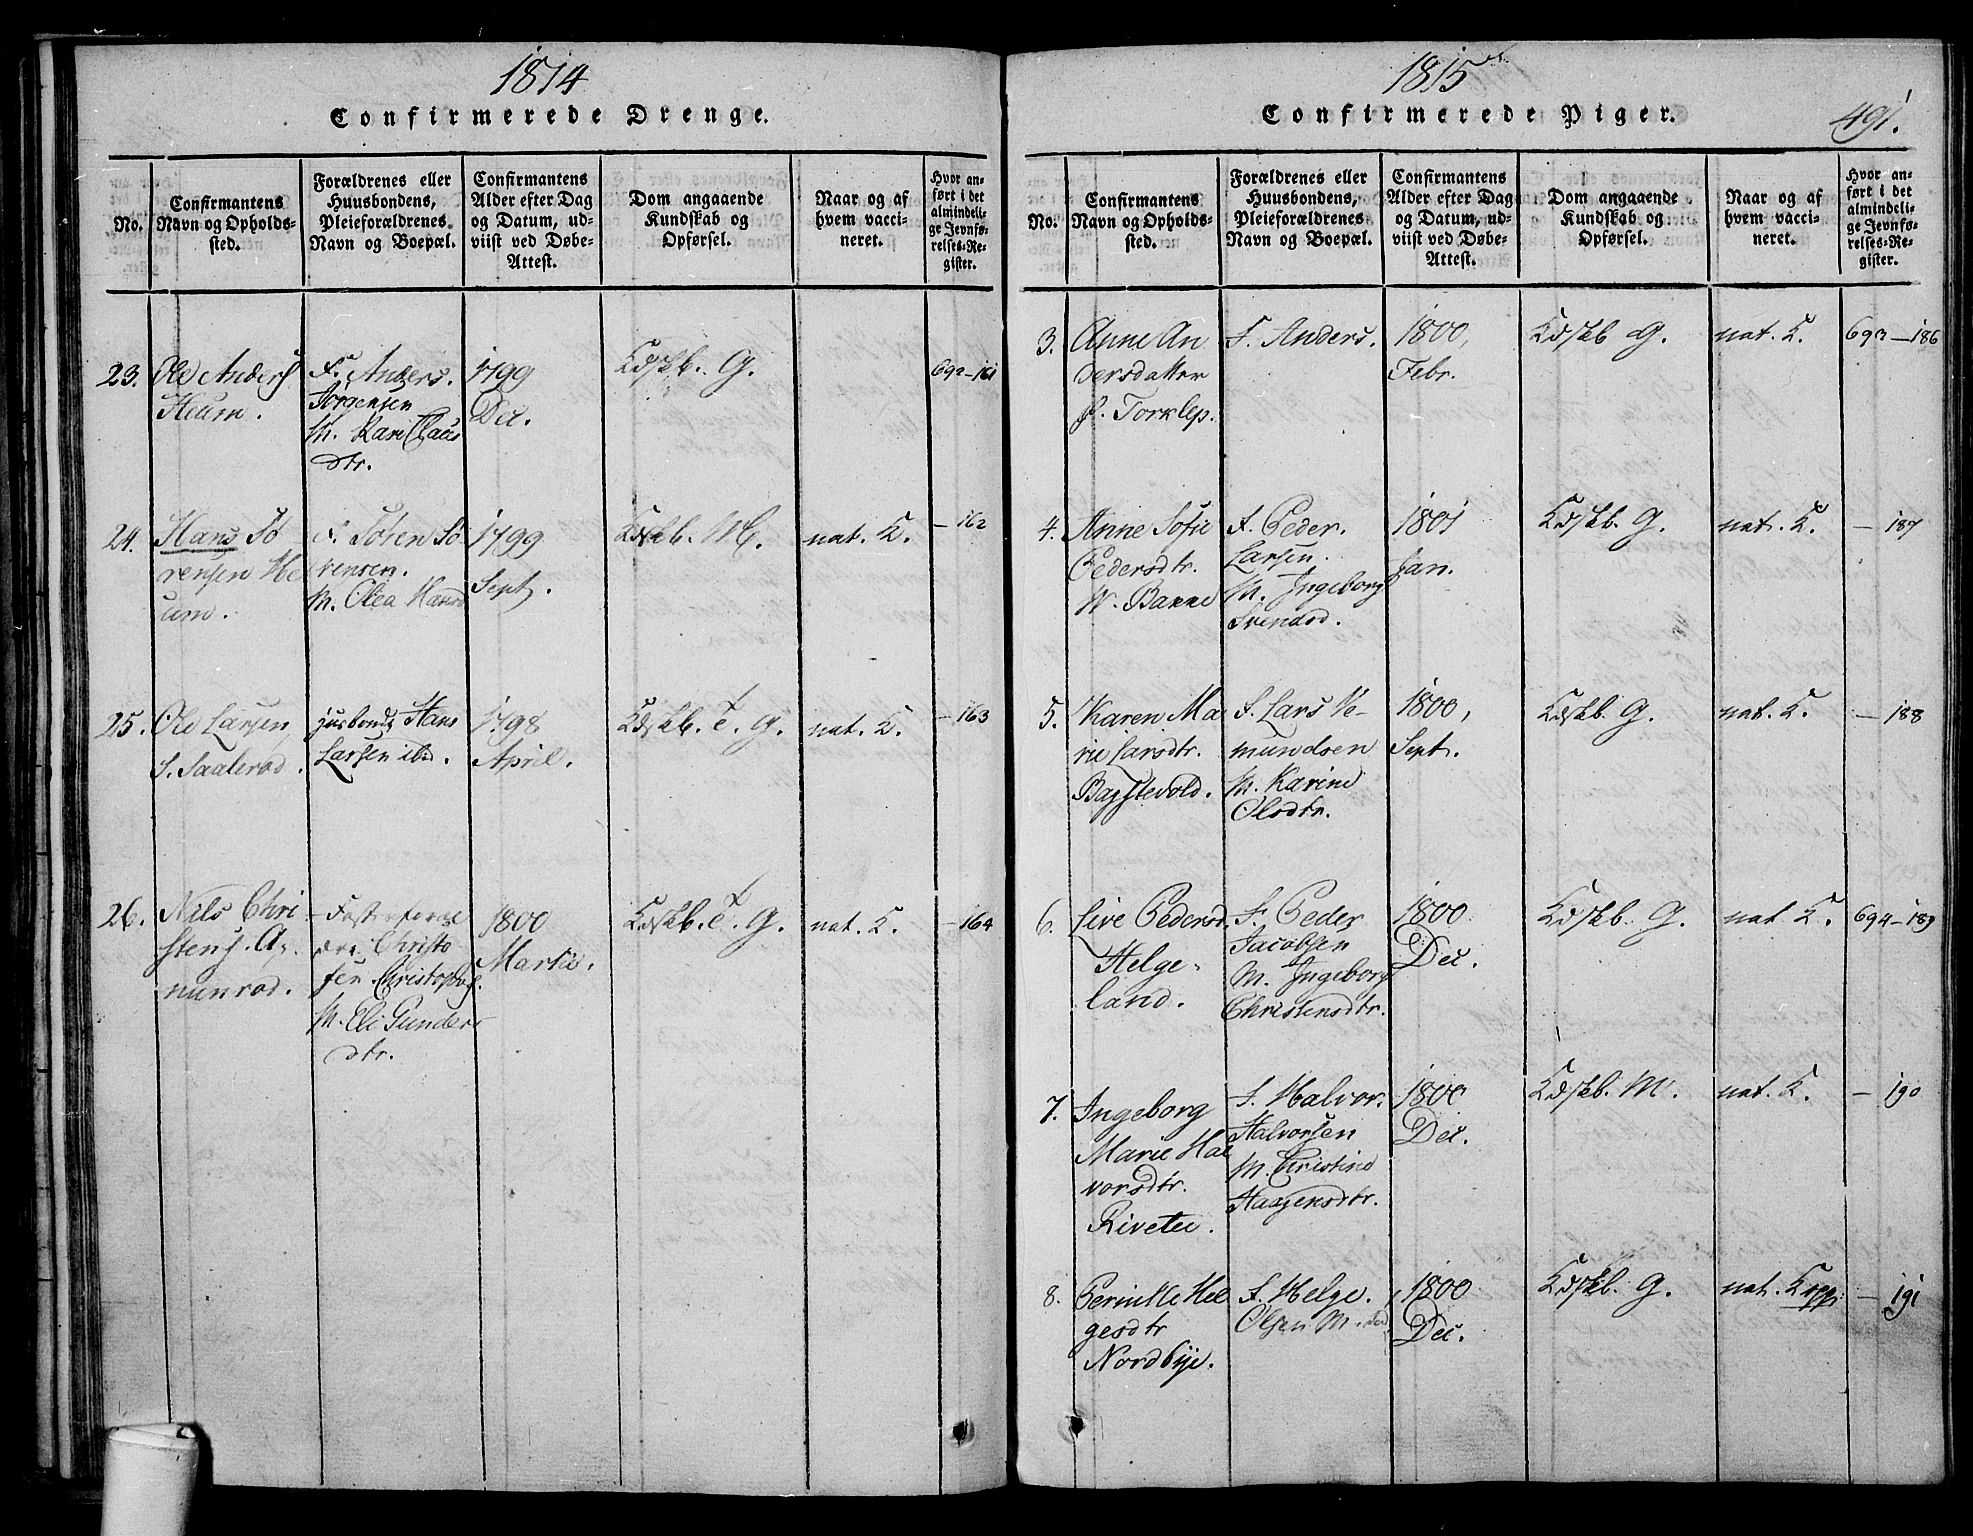 1814
Confirmerede Drenge.
No.
Confirmantens
Navn og Opholds-
sted.
Forældrenes eller
Huusbondens,
Pleieforældrenes
Navn og Boepæl.
Confirmantens
Alder efter Dag
og Datum, ud-
viist ved Døbe-
Attest.
Dom angaaende
Kundskab og
Opførsel.
Naar og af
hvem vacci-
neret.
Hvor an-
ført i det
almindeli-
ge Jevnfø-
relses-Re-
gister.
23.
Ole Anders
Heum.
F. Anders.
Jørgensen
M. Kari Claus
dtr.
1799
Dec.
Kdskb. G.
692-161
24.
Hans Sø
rensen He
um.
F. Søren Sø
rensen.
M. Olea Hansd
1799
Sept.
Kdskb. M.
nat. K.
- 162
25.
Ole Larsen
S. Saalerød.
Husbond Hans
Larsen ibid.
1798
April.
Kdskb. T. G.
nat. K.
- 163
26.
Nils Chri
stens.
Fosterforæl
dre Christo
fen Christophs.
M. Eli Gunders
dtr.
1800
Martii.
Kdskb. T. G.
nat. K.
- 164
1815
Confirmerede Piger.
491.
No.
Confirmantens
Navn og Opholds-
sted.
Forældrenes eller
Huusbondens,
Pleieforældrenes
Navn og Boepæl.
Confirmantens
Alder efter Dag
og Datum, ud-
viist ved Døbe-
Attest.
Dom angaaende
Kundskab og
Opførsel.
Naar og af
hvem vacci-
neret.
Hvor an-
ført i det
almindeli-
ge Jevnfø-
relses-Re-
gister.
3.
Anne An
dersdatter
P. Torklep.
F. Anders.
1800,
Febr.
Kdskb G.
nat. K.
693-186
4.
Anne Sofie
Pedersdtr.
N. Bakke
F. Peder.
Larsen.
M. Ingeborg
Svendsd.
1801
Jan.
Kdskb. G.
nat. K.
- 187
5.
Karen Ma
rie Larsdtr.
Bagstevold.
F. Lars Ve-
mundsen
M. Karine
Olsdtr.
1800,
Sept.
Kdskb. G.
nat. K.
- 188
6.
Live Pedersd.
Helge-
land.
F. Peder
Jacobsen
M. Ingeborg
Christensdtr.
1800
Dec.
Kdskb. G.
nat K.
694-189
7.
Ingeborg
Marie Hal
vorsdtr.
Rivetei.
F. Halvor.
Halvorsen
M. Christine
Haagensdtr.
1800
Dec.
Kdskb. M.
nat. K.
- 190
8.
Pernille Hel
gesdtr
Nordbye.
F. Helge.
Olsen M.
1800
Dec.
Kdskb. G.
nat. Kopp
- 191